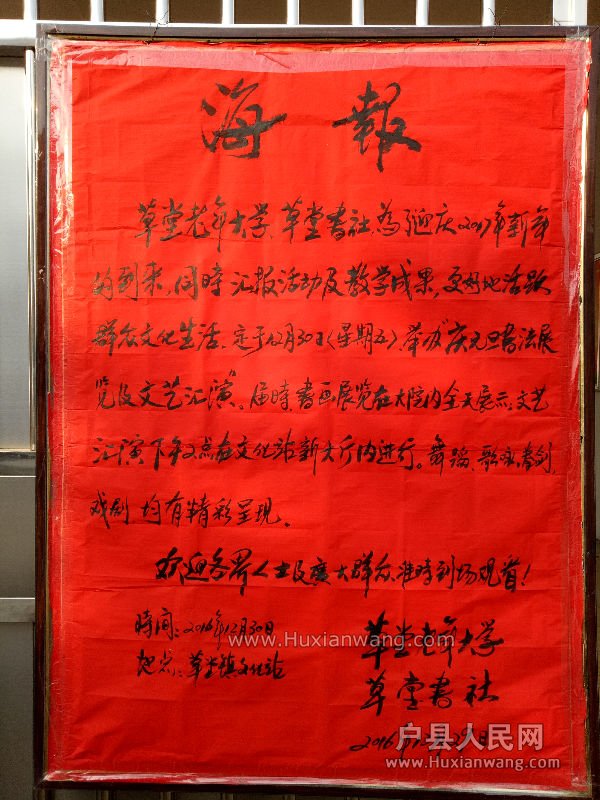 海報
草堂老年大学、草堂書社为了迎庆2017年新年
的到来,同時汇报活动及教学成果,更好地活跃
群众文化生活,定于12月30日(星期五)举办"庆元旦書法展
览及文艺汇演"。届時,書画展览在大院内全天展示,文艺
汇演下午2点在文化站新大厅内进行。舞蹈、歌曲、
戏剧 均有精彩呈現。
欢迎各界人士及廣大群众准時到场观看!
時间:2016年12月30日
地点:草堂镇文化站
www.Huxianwang.com
草堂老年大学
草堂書社
2016年12月29日
户县人民网
www.Huxianwang.com